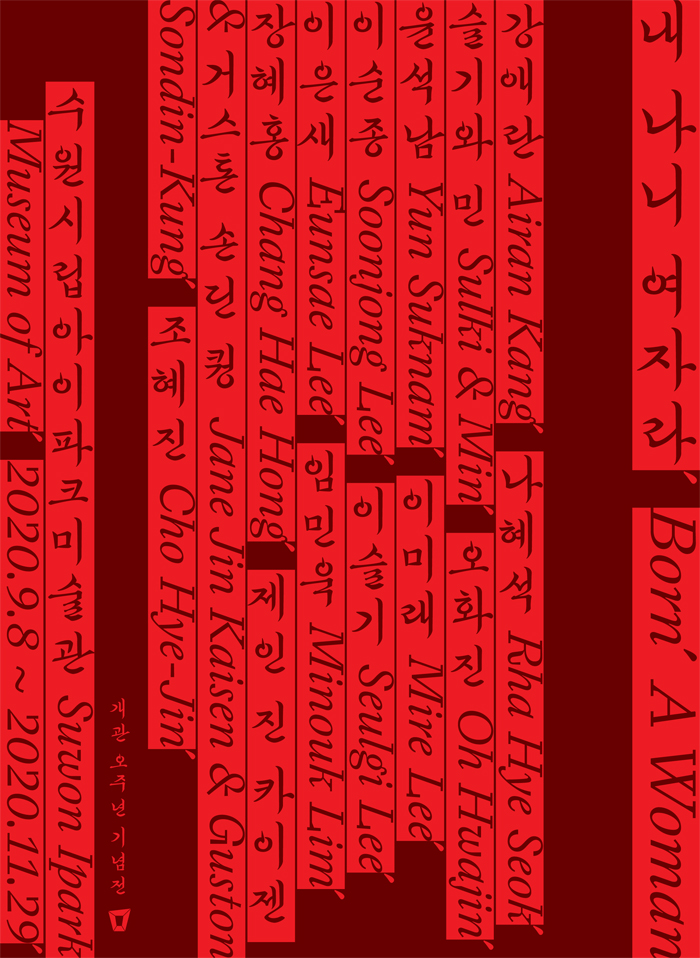 내 나니 여자라, Born, A Woman
강애란 Airan Kang, 나혜석 Rha Hye Seok,
슬기와 민 Sulki & Min, 오화진 Oh Hwajin,
윤석남 Yun Suknam, 이미래 Mire Lee,
이순종 Soonjong Lee, 이슬기 Seulgi Lee,
이은새 Eunsae Lee, 임민욱 Minouk Lim,
장혜홍 Chang Hae Hong, 제인 진 카이젠
& 거스톤 손딘퀑 Jane Jin Kaisen & Guston
Sondin-Kung, 조혜진 Cho Hye-Jin,
개관 오주년 기념전
수원시립아이파크미술관 Suwon Ipark
Museum of Art, 2020.9.8 ~ 2020.11.29,